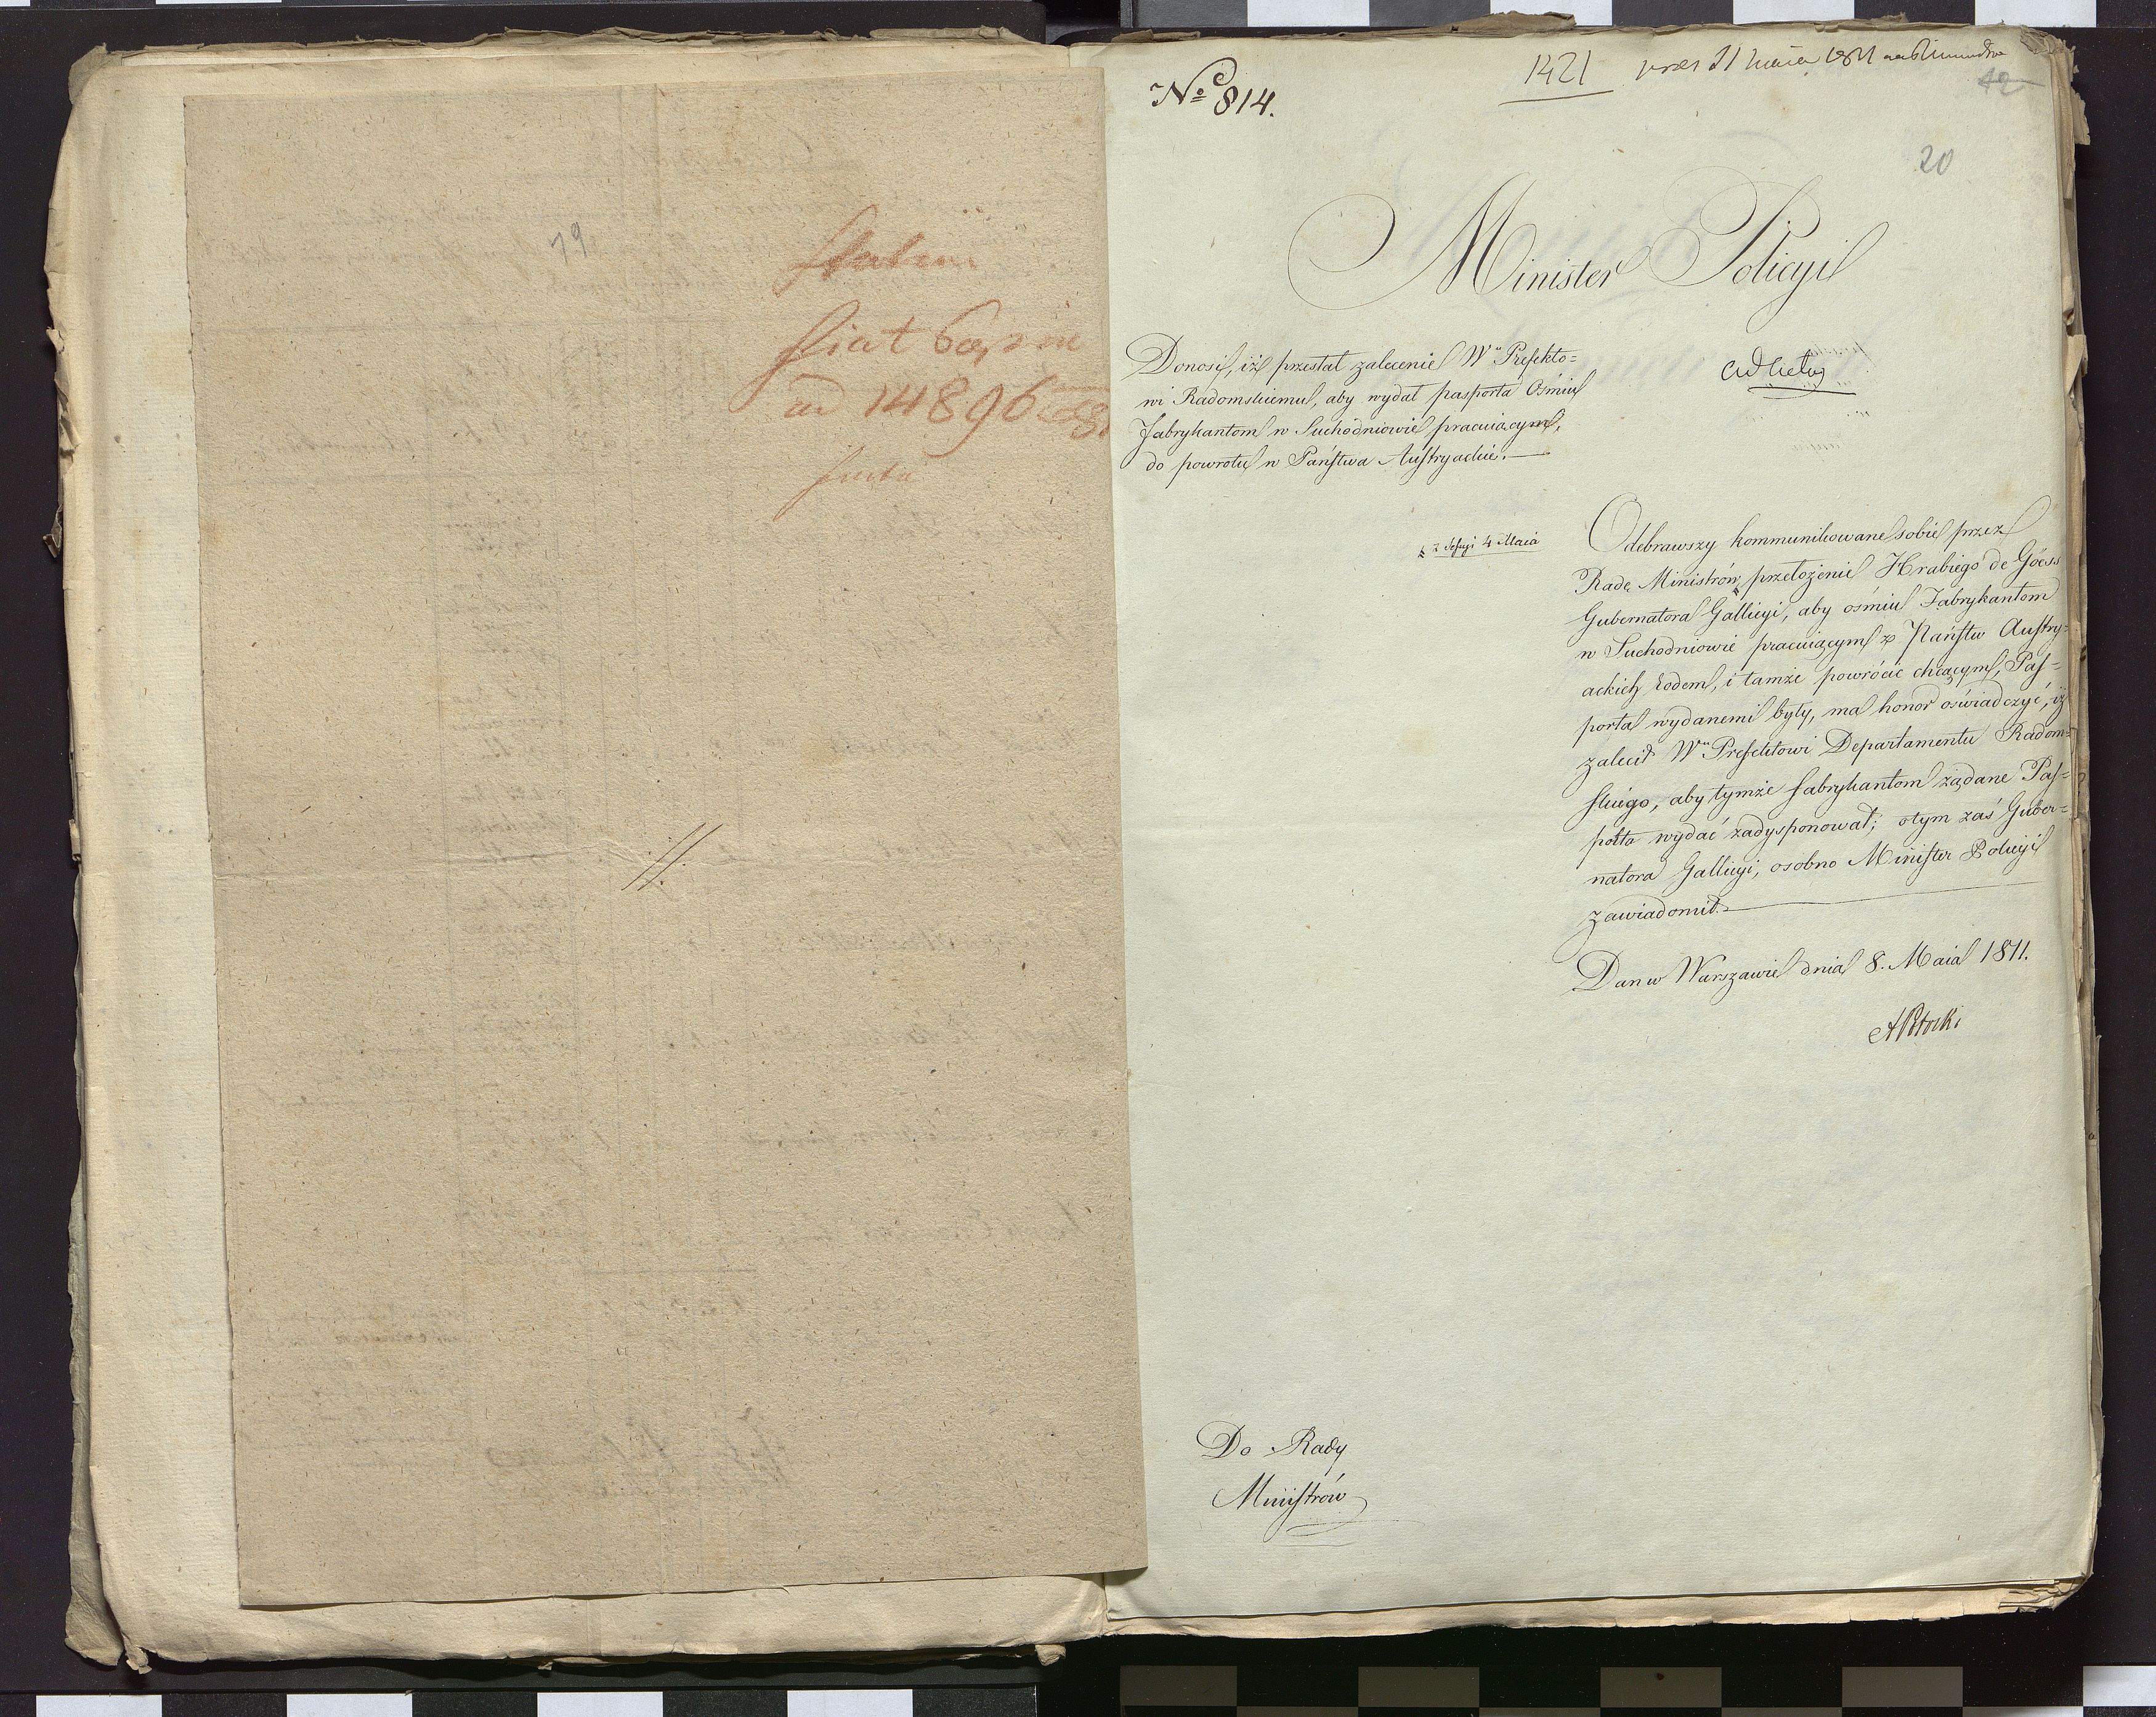 79
fiat
ad 14896
//.
1421
42
No 814.
20
Minister Policyi
Donosi, iż przesłał zalecenie Wu Prefekto=
wi Radomskiemu, aby wydał pasporta Ośmiu
Fabrykantom w Suchodniowie pracuiącym,
do powrotu w Państwa Austryackie.
ad acta
z Sessyi 4 Maia
Odebrawszy kommunikowane sobie przez
Radę Ministrów przełożenie Hrabiego de Göess
Gubernatora Gallicyi, aby ośmiu Fabrykantom
w Suchodniowie pracuiącym z Państw Austry=
ackich rodem, i tamże powrócić chcącym, Pas=
porta wydanemi były, ma honor oświadczyć, iż
zalecił Wu Prefektowi Departamentu Radom=
skiego, aby tymże fabrykantom żądane Pas=
porta wydać zadysponował; o tym zaś Guber=
natora Gallicyi, osobno Minister Policyi
zawiadomił.
Dan w Warszawie dnia 8. Maia 1811.
APotocki
Do Rady
Ministrów